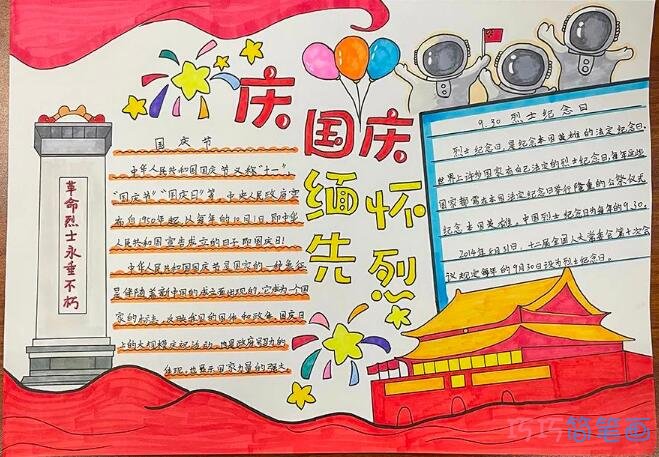 庆国庆
缅怀先烈
革命烈士永垂不朽
国庆节
中华人民共和国国庆节又称“十一”
“国庆节”“国庆日”等，中央人民政府宣
布自1950年起，以每年的10月1日，即中华
人民共和国宣告成立的日子，即国庆日！
中华人民共和国国庆节是国家的一种象征
是伴随着新中国的成立而出现的，它成为一个国
家的标志，反映我国的国体和政体，国庆日
上的大规模庆祝活动，也是政府
体现，也显示国家力量的强大
9.30 烈士纪念日
烈士纪念日，是纪念本国英雄的法定纪念日，
世界上许多国家有自己法定的烈士纪念日，每年这些
国家都需在本国法定纪念日举行隆重的公祭仪式
纪念本国英雄，中国烈士纪念日为每年的9.30。
2014年8月31日，十二届全国人大常委会第十次会
议规定每年的9月30日设为烈士纪念日。
巧巧简笔画